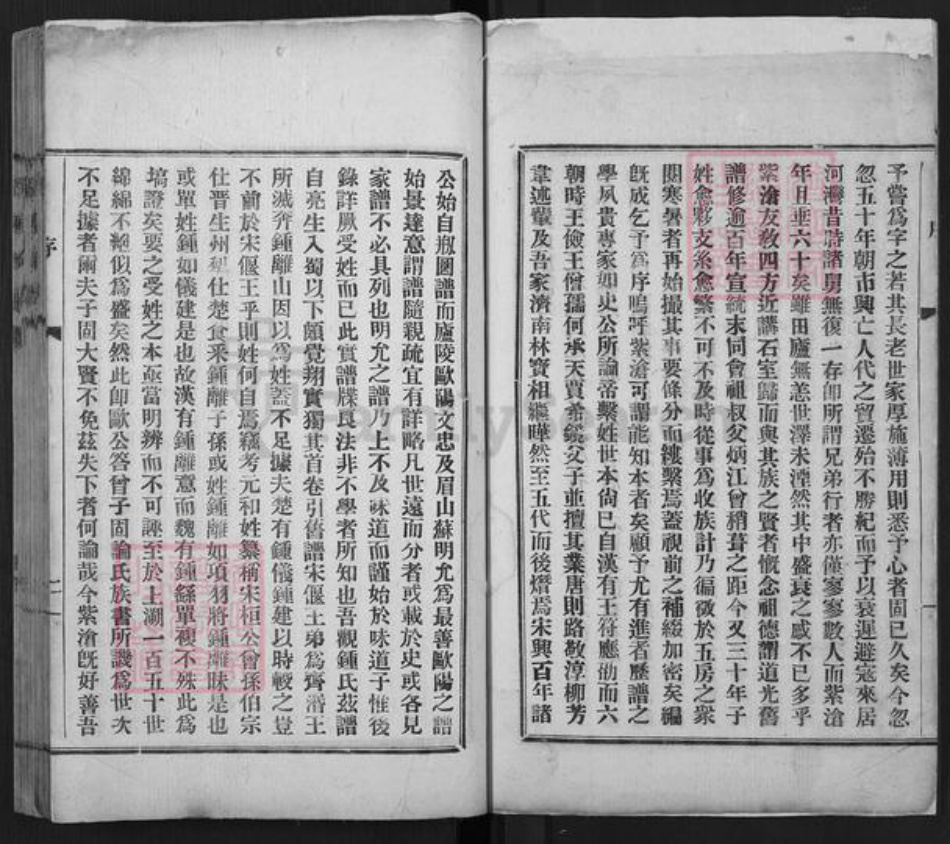 序
予嘗爲字之若其長老世家厚施薄用則悉予心者固已久矣今忽
忽五十年朝市興亡人代之貿遷殆不勝紀而予以衰遲避寇來居
河灣昔時諸舅無復一存卽所謂兄弟行者亦僅寥寥數人而紫滄
年且垂六十矣雖田廬無恙世澤未湮然其中盛衰之感不已多乎
紫滄友教四方近講石室歸而與其族之賢者慨念祖德謂道光舊
譜修逾百年宣統末伺會祖叔父炳江曾稍葺之距今又三十年子
姓愈夥支系愈繁不可不及時從事爲收族計乃徧徵於五房之衆
閱寒暑者再始撮其事要條分而縷繫焉蓋視前之補綴加密矣編
旣成乞予爲序嗚呼紫滄可謂能知本者矣顧予尤有進者歷譜之
學夙貴專家如史公所論帝繫姓世本尙已自漢有王符應劭而六
朝時王儉王僧孺何承天賈希鏡父子並擅其業唐則路敬淳柳芳
韋述輩及吾家濟南林寶相繼曄然至五代而後熸焉宋興百年諸
公始自剏圖譜而廬陵歐陽文忠及眉山蘇明允爲最善歐陽之譜
始景達意謂譜隨親疏宜有詳略凡世遠而分者或載於史或各見
家譜不必具列也明允之譜乃上不及味道而謹始於味道子惟後
錄詳厥受姓而已此實譜牒良法非不學者所知也吾觀鍾氏茲譜
自亮生入蜀以下頗覺翔實獨其首卷引舊譜宋偃王弟爲齊湣王
所滅奔鍾離山因以爲姓蓋不足據夫楚有鍾儀鍾建以時較之豈
不前於宋偃王乎則姓何自焉竊考元和姓纂稱宋桓公曾孫伯宗
仕晉生州犂仕楚食釆鍾離子孫或姓鍾離如項羽將鍾離眛是也
或單姓鍾如儀建是也故漢有鍾離意而魏有鍾繇單複不殊此爲
塙證矣要之受姓之本亟當明辨而不可誣至於上溯一百五十世
綿綿不絕似爲盛矣然此卽歐公答曾子固論氏族書所譏爲世次
不足據者爾夫子固大賢不免茲失下者何論哉今紫滄旣好善吾
序
FamilySearch